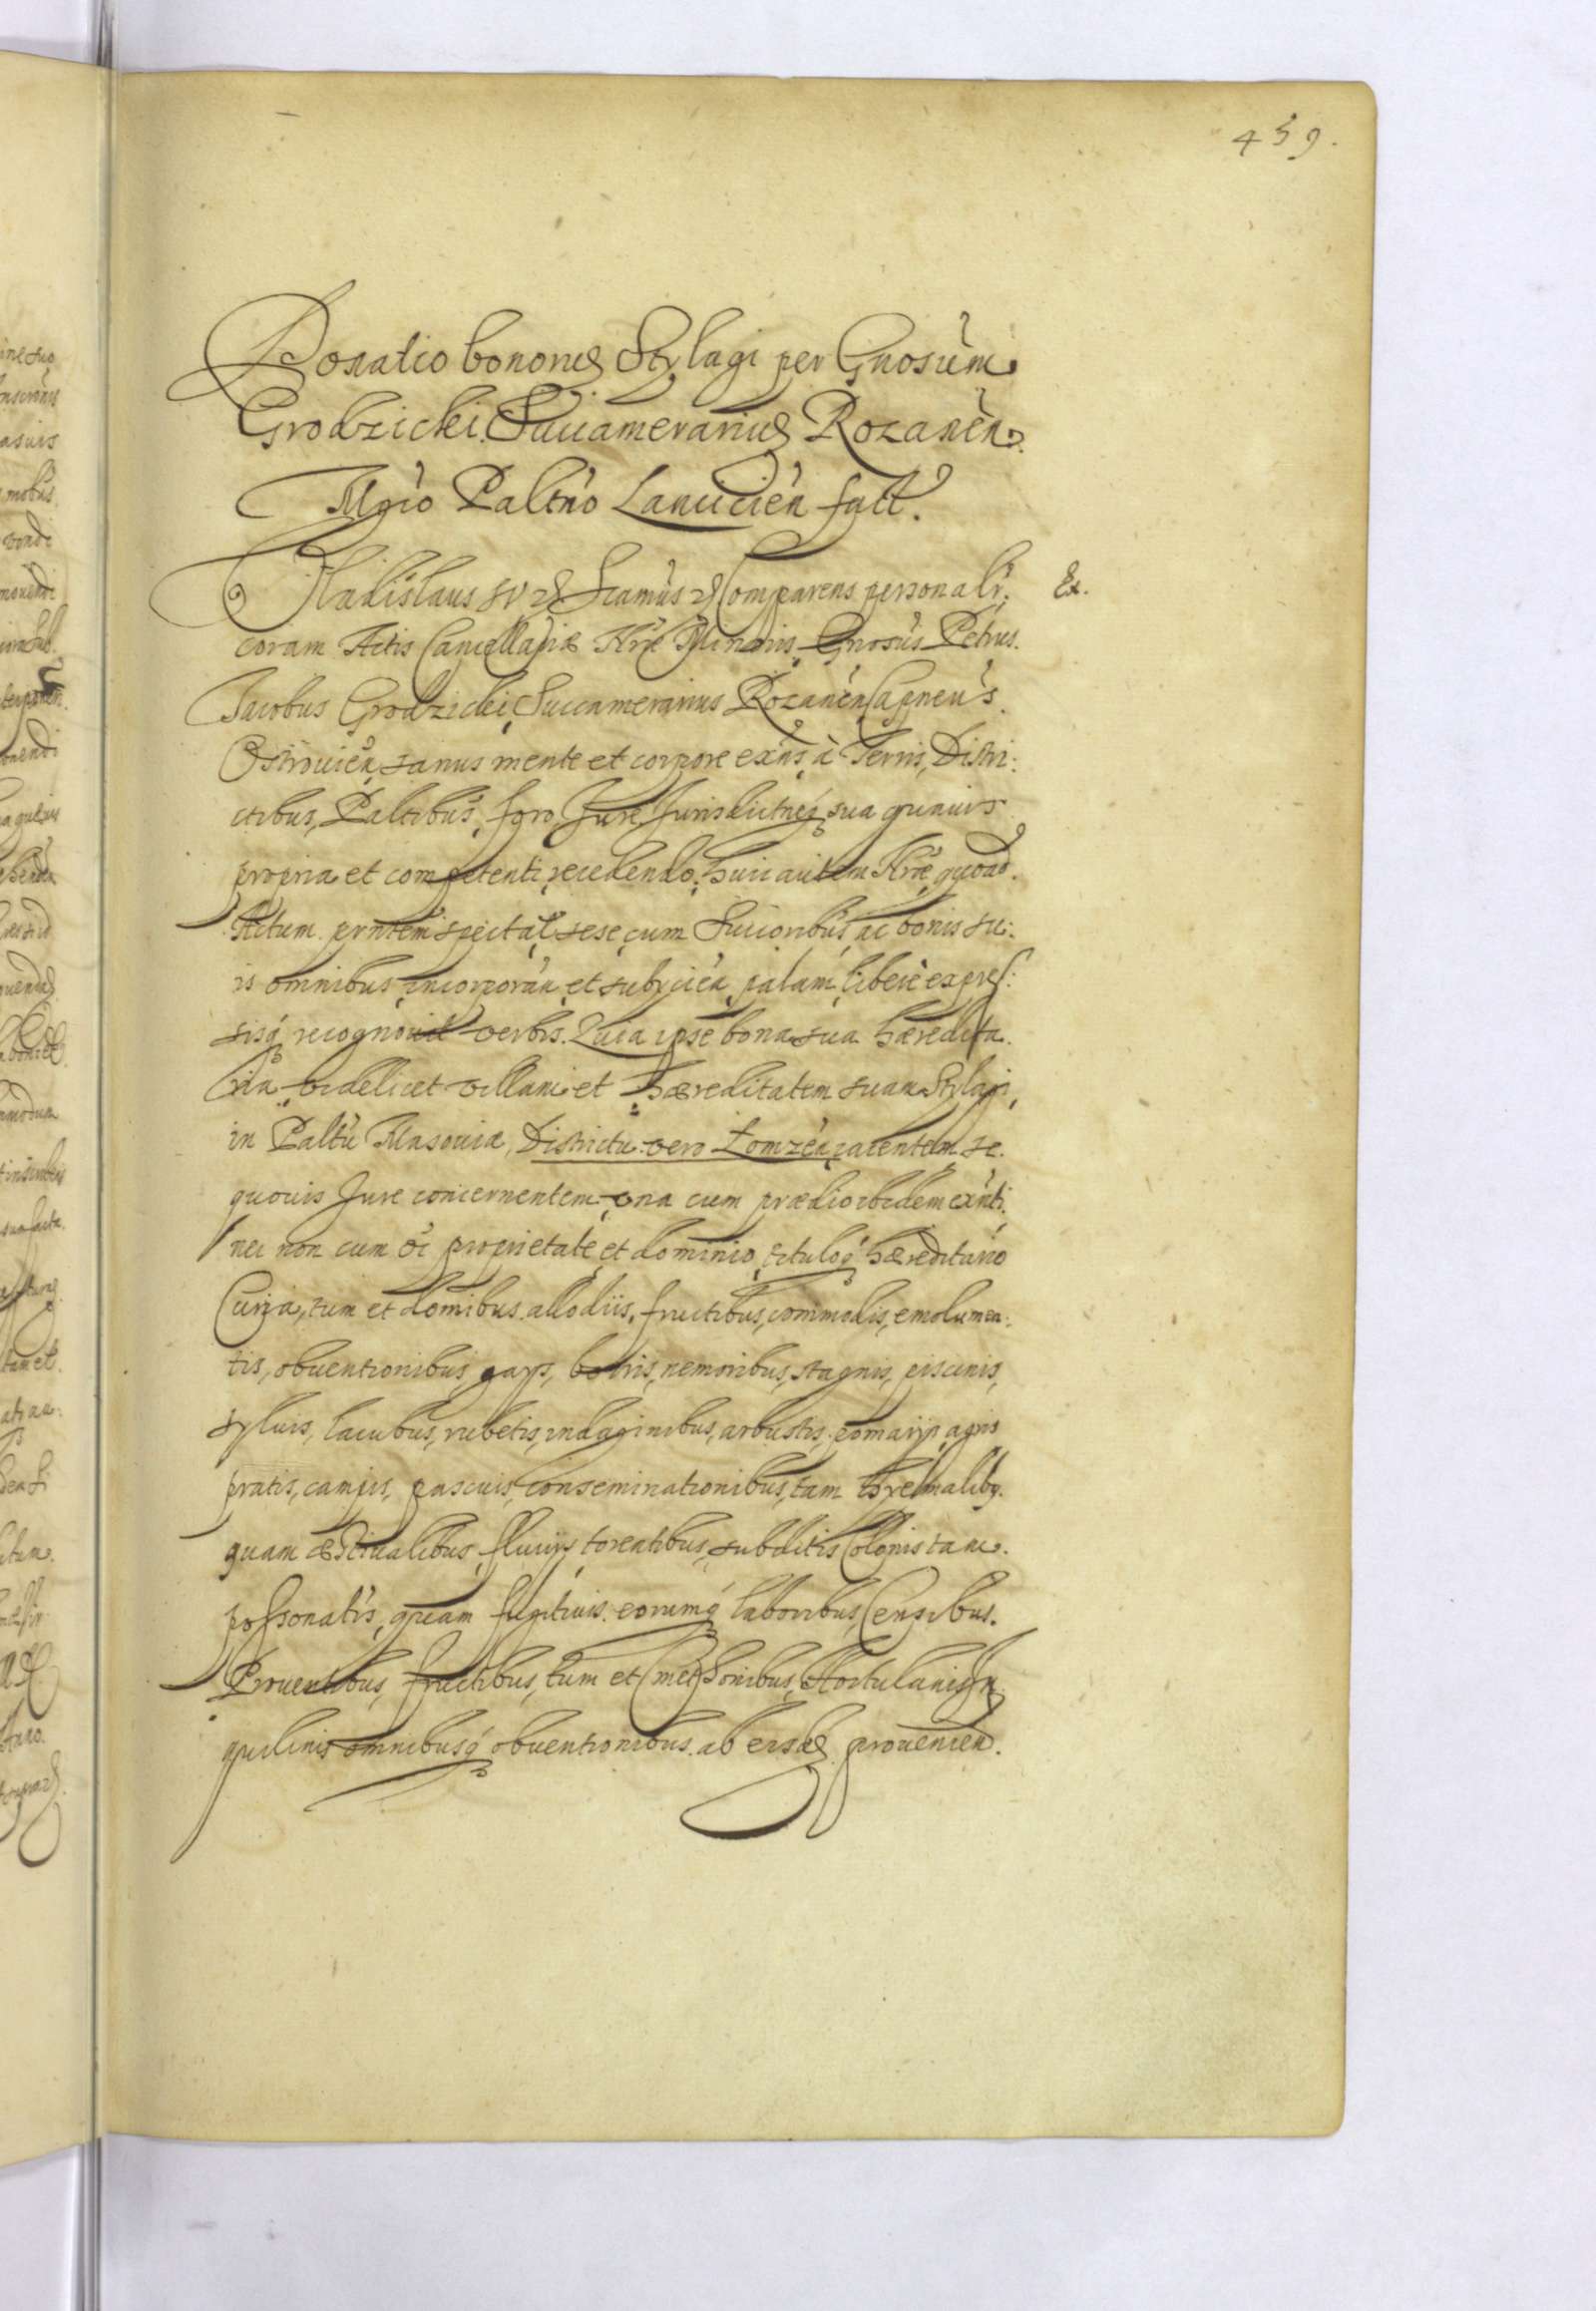 459.
Donatio bonorũ Stylagi per Gnosùm
Grodzicki Succamerariũ Rozanèn
Mgiò Paltnò Lancicièn fact.
Vladislaus IV etc Scamùs etc Comparens personalr̀. Ex.
coram Actis Cancellariæ Nræ Minoris Gnosùs Petrus
Jacobus Grodzicki Succamerarius Rozanèn Capneùs
Ostrovièn sanus mente et corpore exńs, à Terris, Distri:
ctibus, Paltibùs, foro, Jure, Jurisdictneq́ sua quauis
propria et competenti recedendo, huic autem Nræ quoad
Actum pntem̀ spectal̀ sese cum Succoribùs ac bonis su:
is omnibus incorporàn et subijcièn, palam, liberè expres:
sisq́ recognouit verbis. Quia ipse bona sua hæredita
ria, videlicet villam et hæreditatem suam Stylagi,
in Paltù Masouiæ, Districtu vero Łomzèn iacentem se
quouis Jure concernentem, vna cum prædio ibidem exńti,
nec non cum oì proprietate et dominio, tituloq́ hæreditario
Curia, tum et domibus, allodiis, fructibus, commodis, emolumen:
tis, obuentionibus, gays, borris, nemoribus, stagnis, piscinis,
syluis, lacubus, rubetis, indaginibus, arbustis, pomarijs, agris
pratis, campis, pascuis, conseminationibus, tam hyemalibq.
quam æstiualibus, fluuijs, torentibus, subditis Colonis tam
possonatis, quam fugitiuis, eorumq́ laboribus, Censibus.
Prouentibus, fructibus, tum et Cmethonibus, Hortulanis, In
quilinis omnibusq́ obuentionibus ab eisdẽ prouenièn.